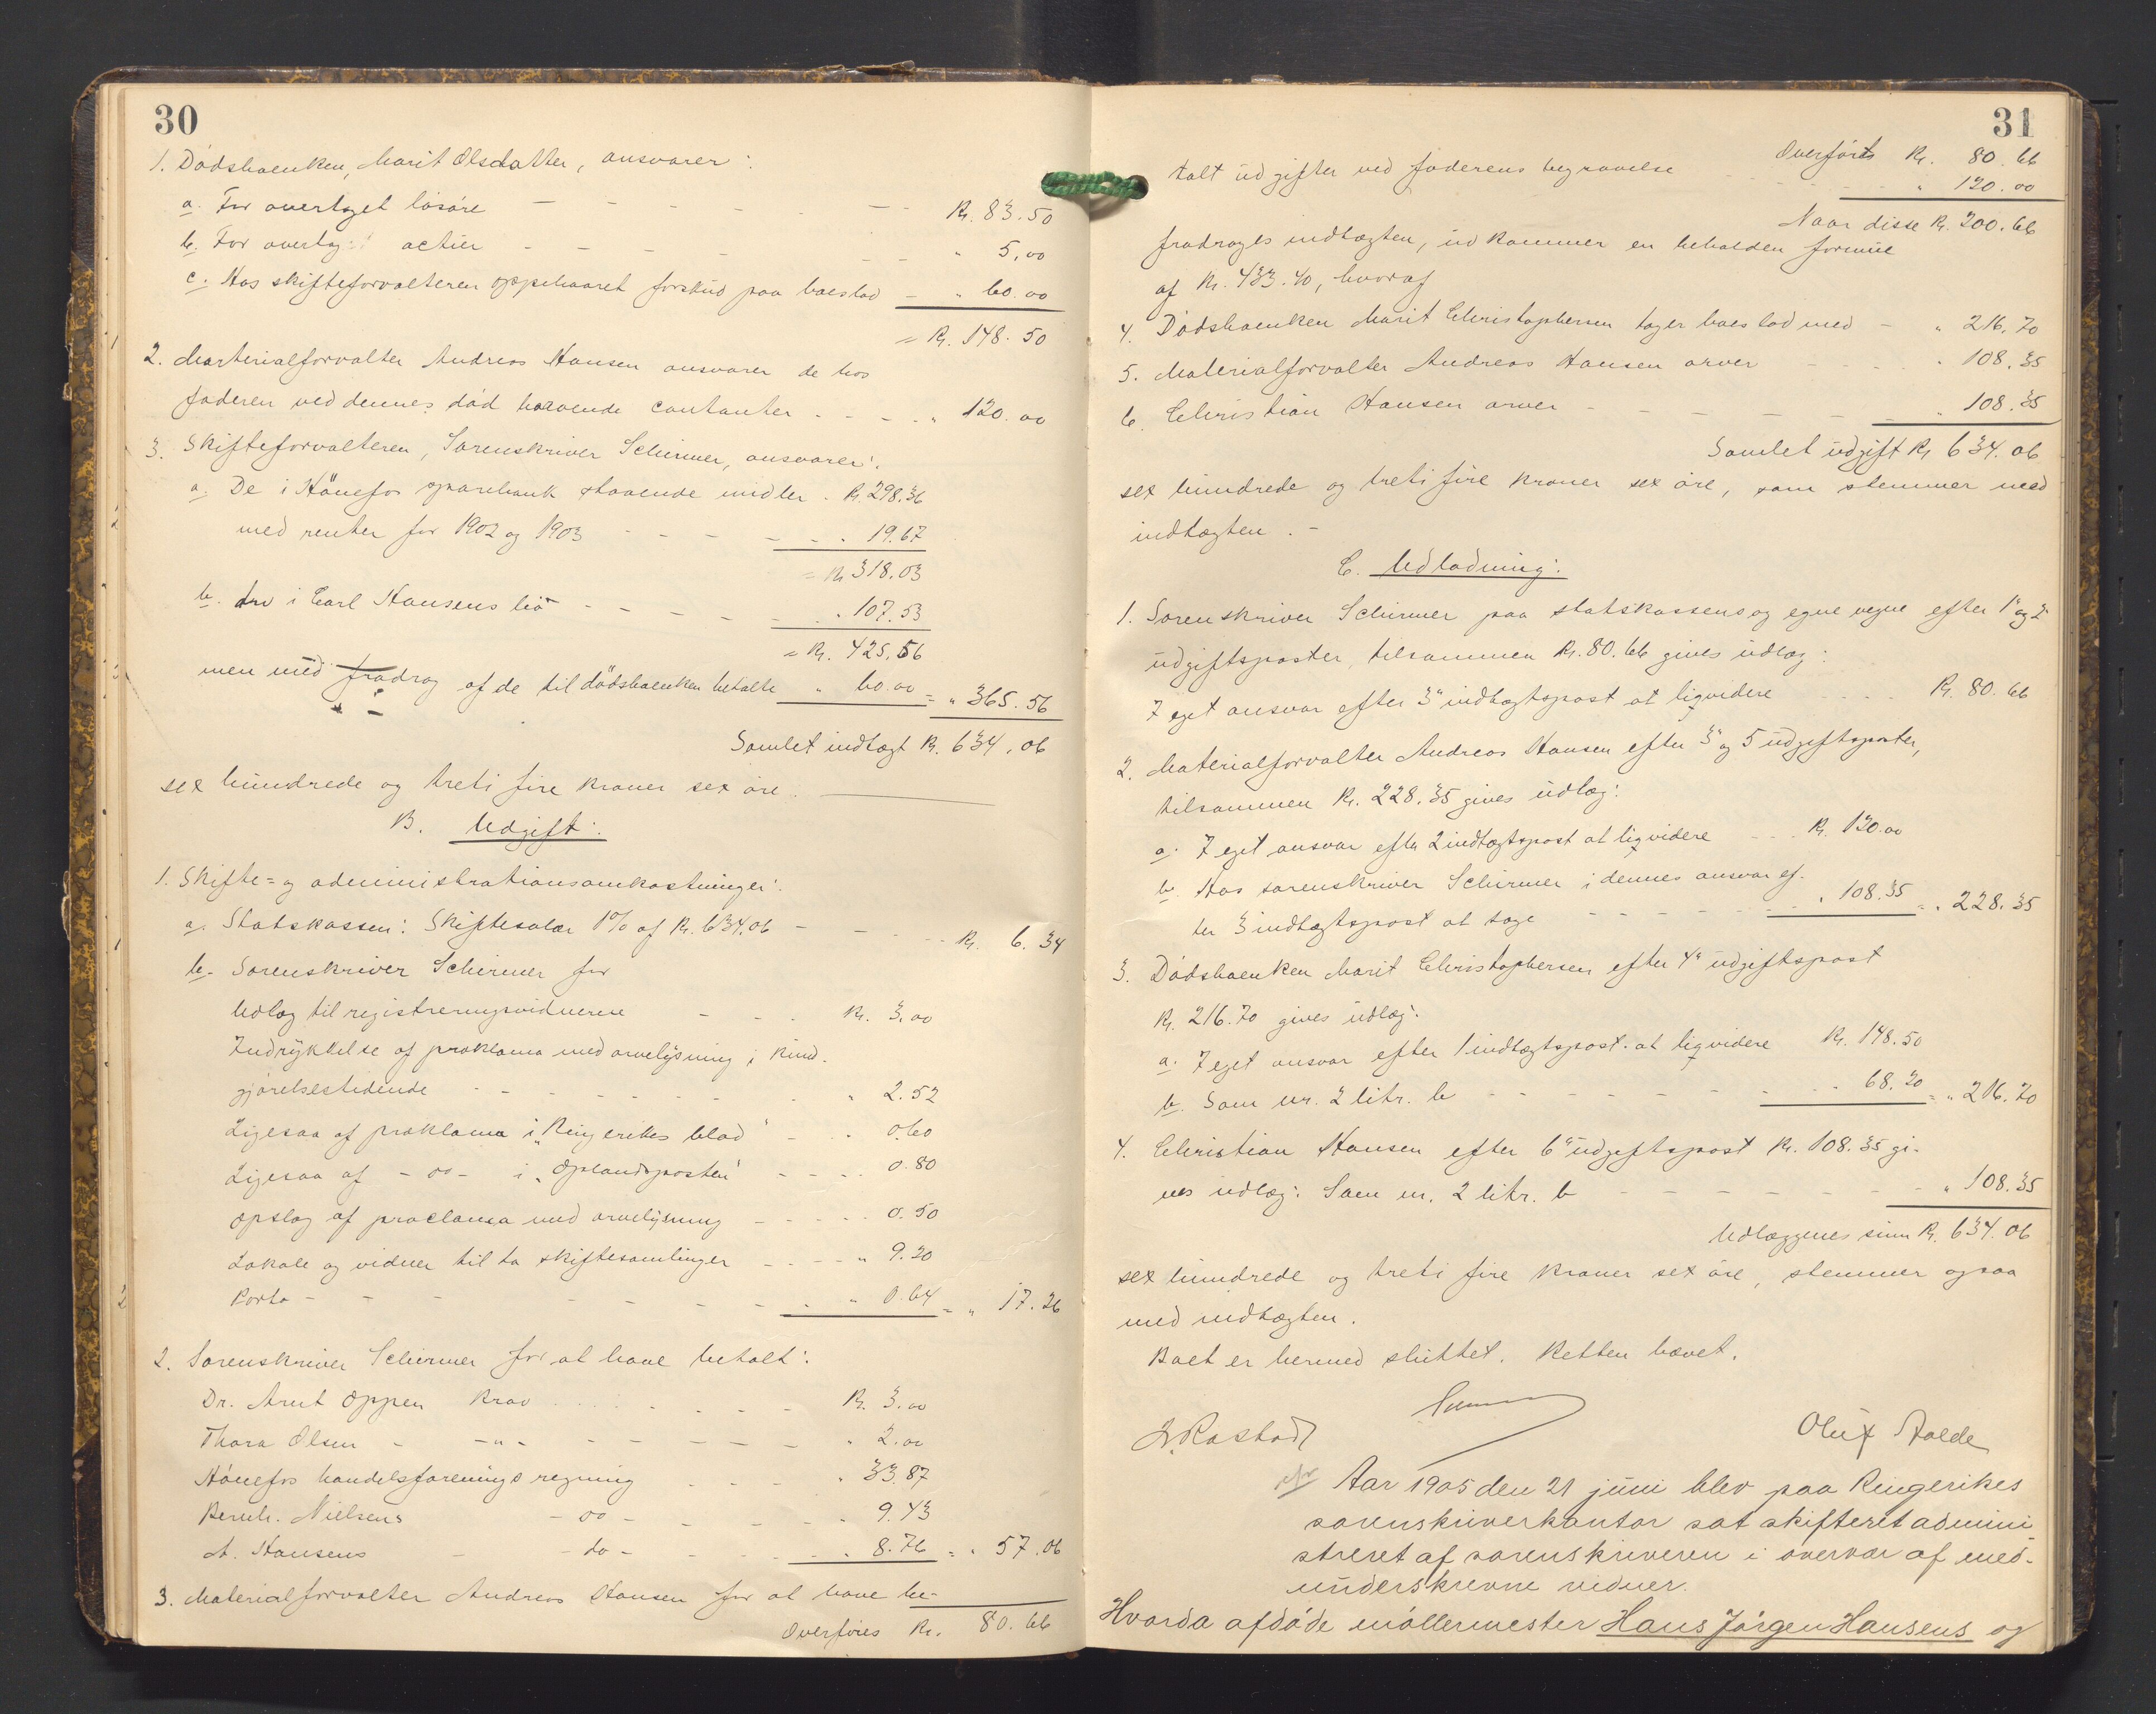 30
1. Dödsboenken, Marit Olsdatter, ansvarer:
a. For overtaget lösöre - - - - - - Kr. 83.50
b. For overtagt actier - - - - - " 5,00
c. Hos skifteforvalteren oppebaaret forskud paa boeslod - " 60.00
= Kr. 148.50
2. Materialforvalter Andreas Hansen ansvarer de hos
faderen ved dennes död havende contanter - - - " 120.00
3. Skifteforvalteren, Sorenskriver Schirmer, ansvarer:
a. De i Hönefos sparebank staaende midler . Kr. 298.36
med renter for 1902 og 1903 - - - - - " 19.67
= Kr 318.03
b. Arv i Carl Hansens bo - - - - - " 107.53
= Kr. 425.56
men med fradrag af de til dödsboenken betalte " 60.00 = " 365.56
Samlet indtægt Kr. 634.06
sex hundrede og treti fire kroner sex öre.
B. Udgift:
1. Skifte= og administrationsomkostninger:
a. Statskassen: Skiftesalær 1% af Kr. 634.06 - - - - Kr. 6.34
b. Sorenskriver Schirmer for
Udlæg til registreringsvidnerne - - - Kr. 3.00
Indrykkelse af proklama med arvelysning i Kund-
gjörelsestidende - - - - - - - " 2.52
Ligesaa af proklama i "Ringerikes blad" - - " 0.60
Ligesaa af - do - i "Oplandsposten" - - - - 0.80
Opslag af proclama med arvelysning - - - - - 0.50
Lokale og vidner til to skiftesamlinger - - - - " 9.20
Porto - - - - - - - - " 0.64 = " 17.26
2. Sorenskriver Schirmer for at have betalt:
Dr. Arnt Oppen krav - - - - - - Kr. 3.00
Thora Olsen - -"- - - - - - - " 2.00
Hönefos handelsforenings regning - - - - " 33.87
Bernh. Nielsens - do - - - - - " 9.43
A. Hansens - - do - - - - - " 8.76 = " 57.06
3. Materialforvalter Andreas Hansen for at have be-
Overföres Kr. 80.66
31
Overfört Kr. 80.66
talt udgifter ved faderens begravelse - - - - - " 120.00
Naar disse Kr. 200.66
fradrages indtægten, udkommer en beholden formue
af Kr. 433.40, hvoraf
4. Dödsboenken Marit Christophersen tager boeslod med - " 216.70
5. Materialforvalter Andreas Hansen arver - - - - " 108.35
6. Christian Hansen arver - - - - - - " 108.35
Samlet udgift Kr 634.06
sex hundrede og treti fire kroner sex öre, som stemmer med
indtægten. -
C. Udlodning:
1. Sorenskriver Schirmer paa statskassens og egne vegne efter 1" og 2"
udgiftsposter, tilsammen Kr. 80.66 gives udlæg:
I eget ansvar efter 3" indtægtspost at liqvidere - - - - Kr. 80.66
2. Materialforvalter Andreas Hansen efter 3" og 5 udgiftsposter,
tilsammen Kr. 228.35 gives udlæg:
a. I eget ansvar efter 2 indtægtspost at liqvidere - - - Kr. 120.00
b. Hos sorenskriver Schirmer i dennes ansvar ef-
ter 3 indtægtspost at tage - - - - - - - " 108.35 = " 228.35
3. Dödsboenken Marit Christophersen efter 4" udgiftspost
Kr. 216.70 gives udlæg:
a. I eget ansvar efter 1 indtægtspost at liqvidere Kr. 148.50
b. Som nr. 2 litr. b - - - - - - - - 68.20 = " 216.70
4. Christian Hansen efter 6" udgiftspost Kr. 108.35 gi-
ves udlæg: Som nr. 2 litr. b - - - - - - - - " 108.35
Udlæggenes sum Kr. 634.06
sex hundrede og treti fire kroner sex öre, stemmer ogsaa
med indtægten.
Boet er hermed sluttet. Retten hævet.
Schirmer
Rastad Oluf Aalde
Aar 1905 den 21 juni blev paa Ringerikes
sorenskriverkontor sat skifteret admini-
streret af sorenskriveren i overvær af med-
underskrevne vidner.
Hvorda afdöde möllermester Hans Jörgen Hansens og